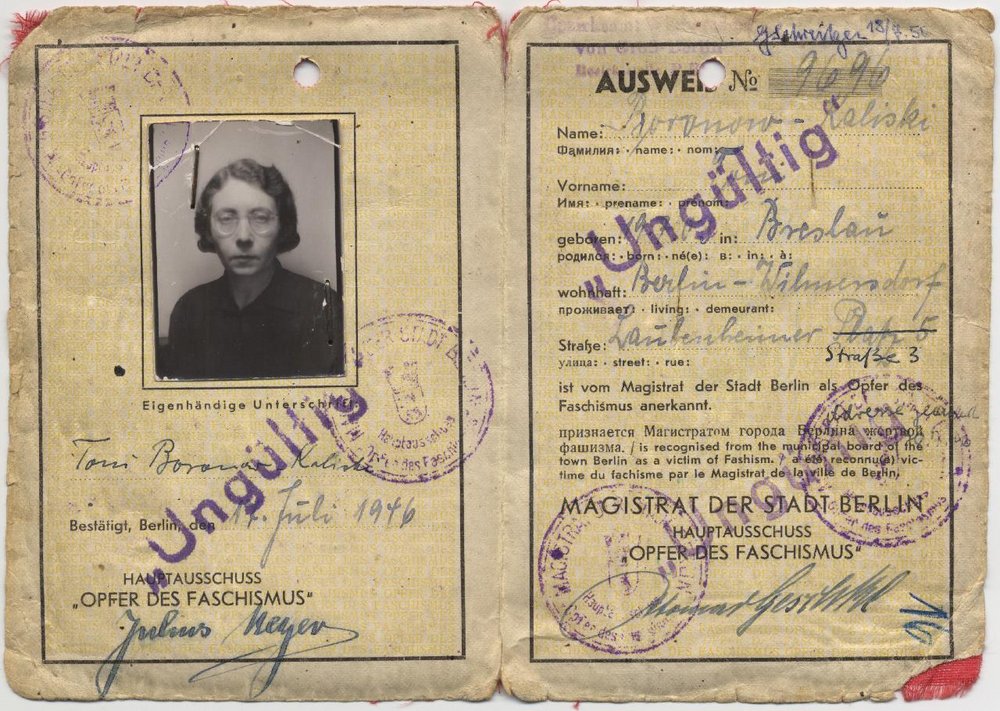 Eigenhändige Unterschrift:
Toni Boronow Kaliski
Bestätigt, Berlin, den 17. Juli 1946
HAUPTAUSSCHUSS
„OPFER DES FASCHISMUS“
Julius Meyer
„Ungültig“
18/7.56
AUSWEIS № 9696
Name: Boronow-Kaliski
Фамилия: · name: · nom:
Vorname:
Имя: · prename: · prénom:
geboren: in: Breslau
родился: · born: · né(e): в: · in: · à:
wohnhaft: Berlin-Wilmersdorf
проживает: · living: · demeurant:
Straße: Laubenheimer Platz 5
Straße 3
улица: · street: · rue:
ist vom Magistrat der Stadt Berlin als Opfer des
Faschismus anerkannt.
признается Магистратом города Берлина жертвой
фашизма. / is recognised from the municipal board of the
town Berlin as a victim of Fashism. / a été reconnu(e) vic-
time du fachisme par le Magistrat de la ville de Berlin.
MAGISTRAT DER STADT BERLIN
HAUPTAUSSCHUSS
„OPFER DES FASCHISMUS“
„Ungültig“